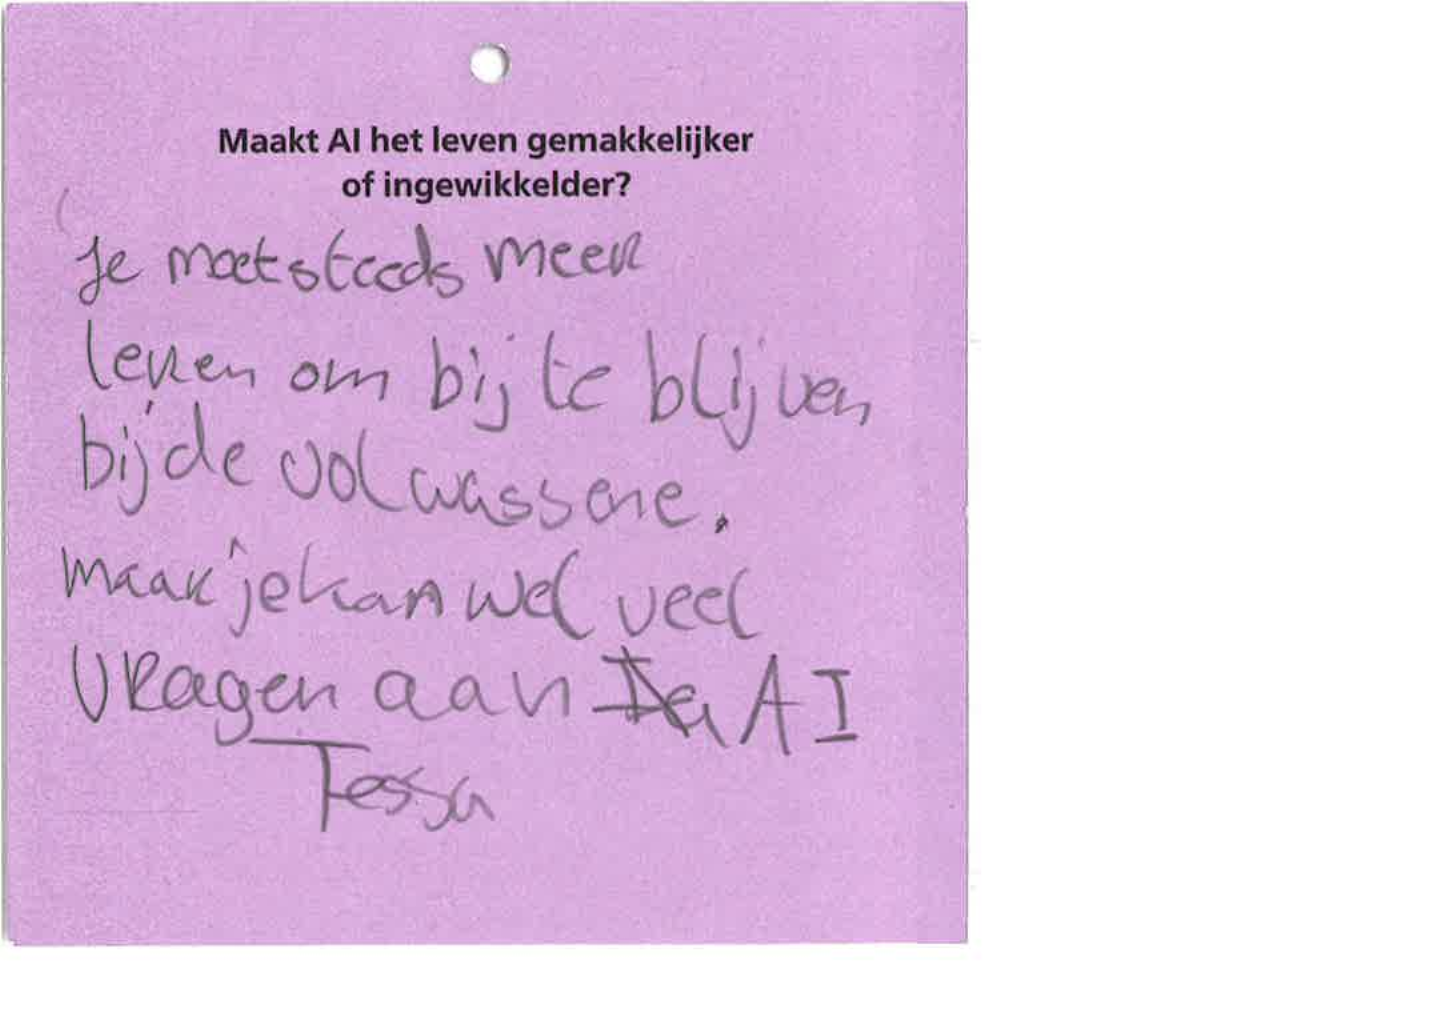 Maakt AI het leven gemakkelijker
of ingewikkelder?
Je moet steeds meer
leren om bij te blijven
bij de volwassene.
maar je kan wel veel
vragen aan AI
Tessa